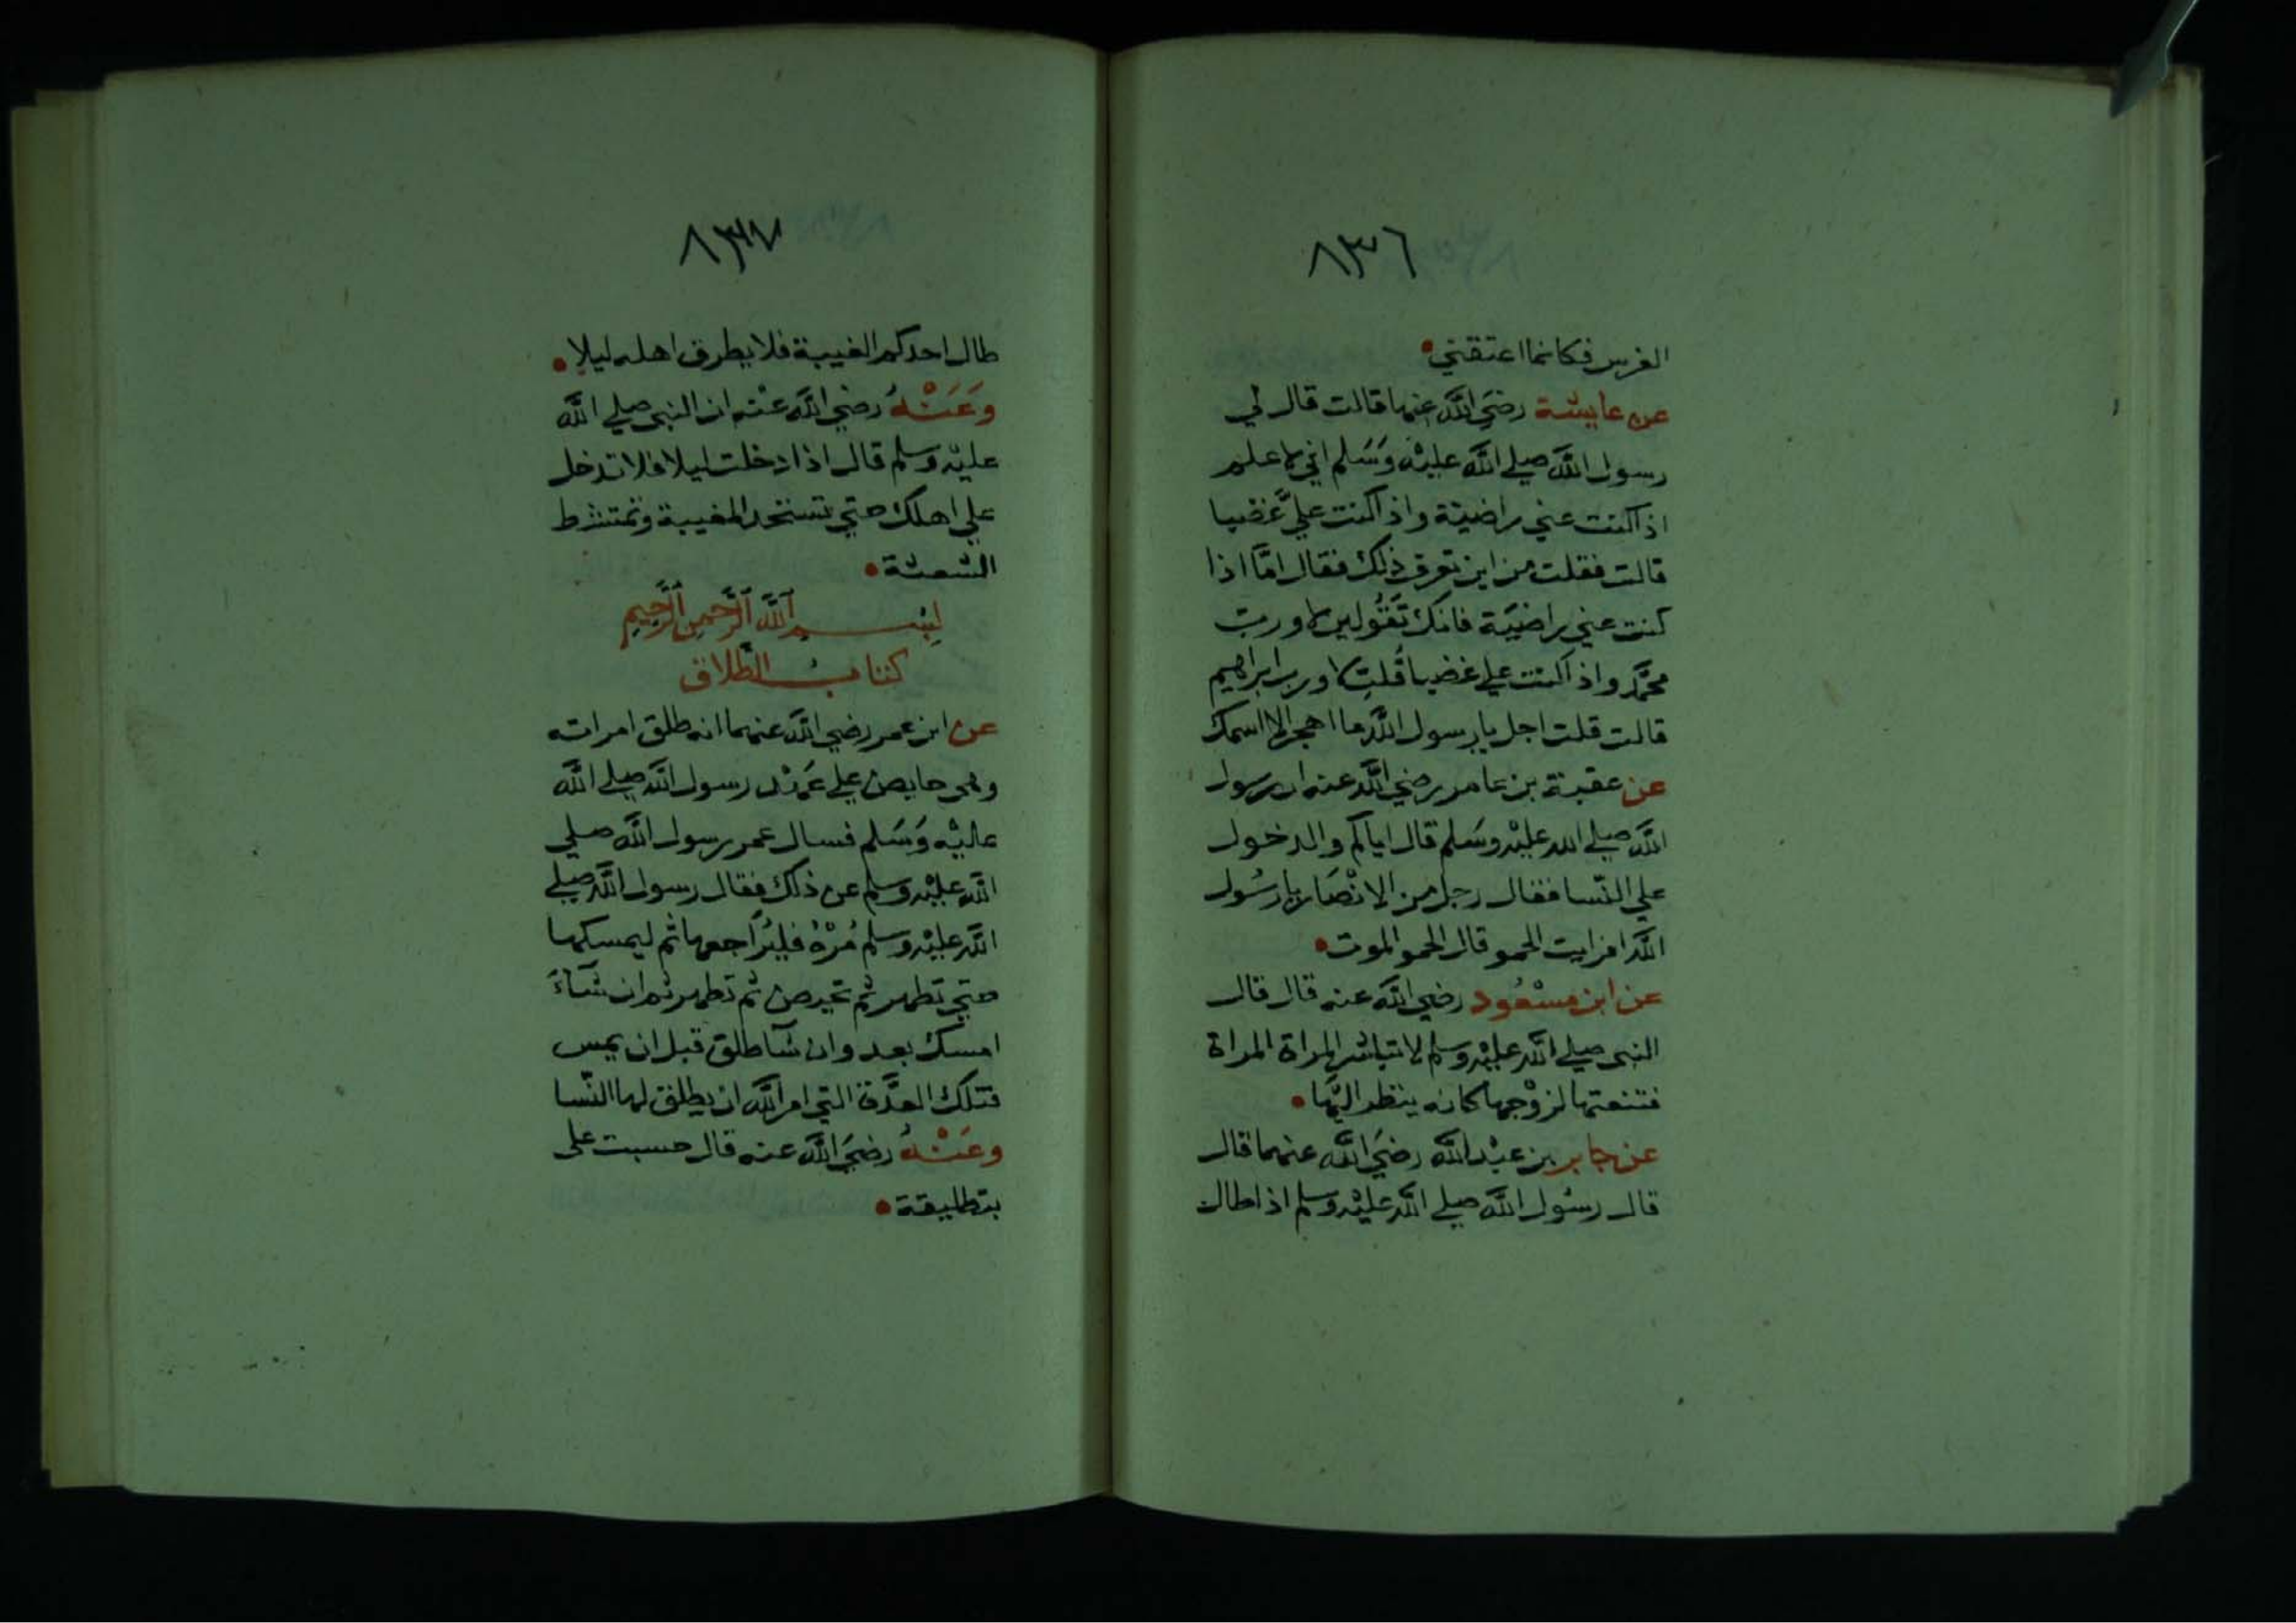 ٨٣٦
الفرس فكانما اعتقني
عن عايشة رضي الله عنها قالت قال لي
رسول الله صلي الله عليه وَسَلم اني لاعلم
اذا كنت عني راضية واذا كنت عليَّ غضبا
قالت فقلت من اين تعرف ذلك فقال امَّا اذا
كنت عني راضيَة فانك تَقُولين لا ورب
محمَّد واذا كنت علي غضبا قُلتِ لا ورب ابراهيم
قالت قلت اجل يا رسول الله ما اهجر الا اسمك
عن عقبة بن عامر رضي الله عنه ان رسول
الله صلي الله عليْه وسَلم قال اياكم والدخول
علي النّسا فقال رجل من الانْصَار يا رسُول
الله افرايت الحمو قال الحمو الموت
عن ابن مسْعُود رضي الله عنه قال قال
النبي صلي الله عليْه وسلم لا تباشر المراة المراة
فتنعتها لزوْجها كانه ينظر اليْها
عن جابر بن عبْد الله رضيَ الله عنهما قال
قال رسُول الله صلي الله عليْه وسلم اذا طال
٨٣٧
طال احدكم الغيبة فلا يطرق اهله ليلا
وَعَنْهُ رضي الله عنْه ان النبي صلي الله
عليْه وَسلم قال اذا دخلت ليلا فلا تدخل
علي اهلك حتي تستحد المغيبة وتمتشط
الشعثة
بِسْم الله الرَّحمن الرَّحِيم
كتابُ الطّلاق
عن ابن عمر رضي الله عنهما انه طلق امراته
وهى حايض علي عَهْد رسول الله صلي الله
عليْه وَسَلم فسال عمر رسول الله صلي
الله عليْه وسلم عن ذلك فقال رسول الله صلي
الله عليْه وسلم مُرْهُ فليُراجعها ثم ليمسكها
حتي تطهر ثم تحيض ثم تطهر ثم ان شَآءَ
امسك بعد وان شآ طلق قبل ان يمس
فتلك العدَّة التي امر الله ان يطلق لها النّسا
وعَنْهُ رضيَ الله عنه قال حسبت على
بتطليقة